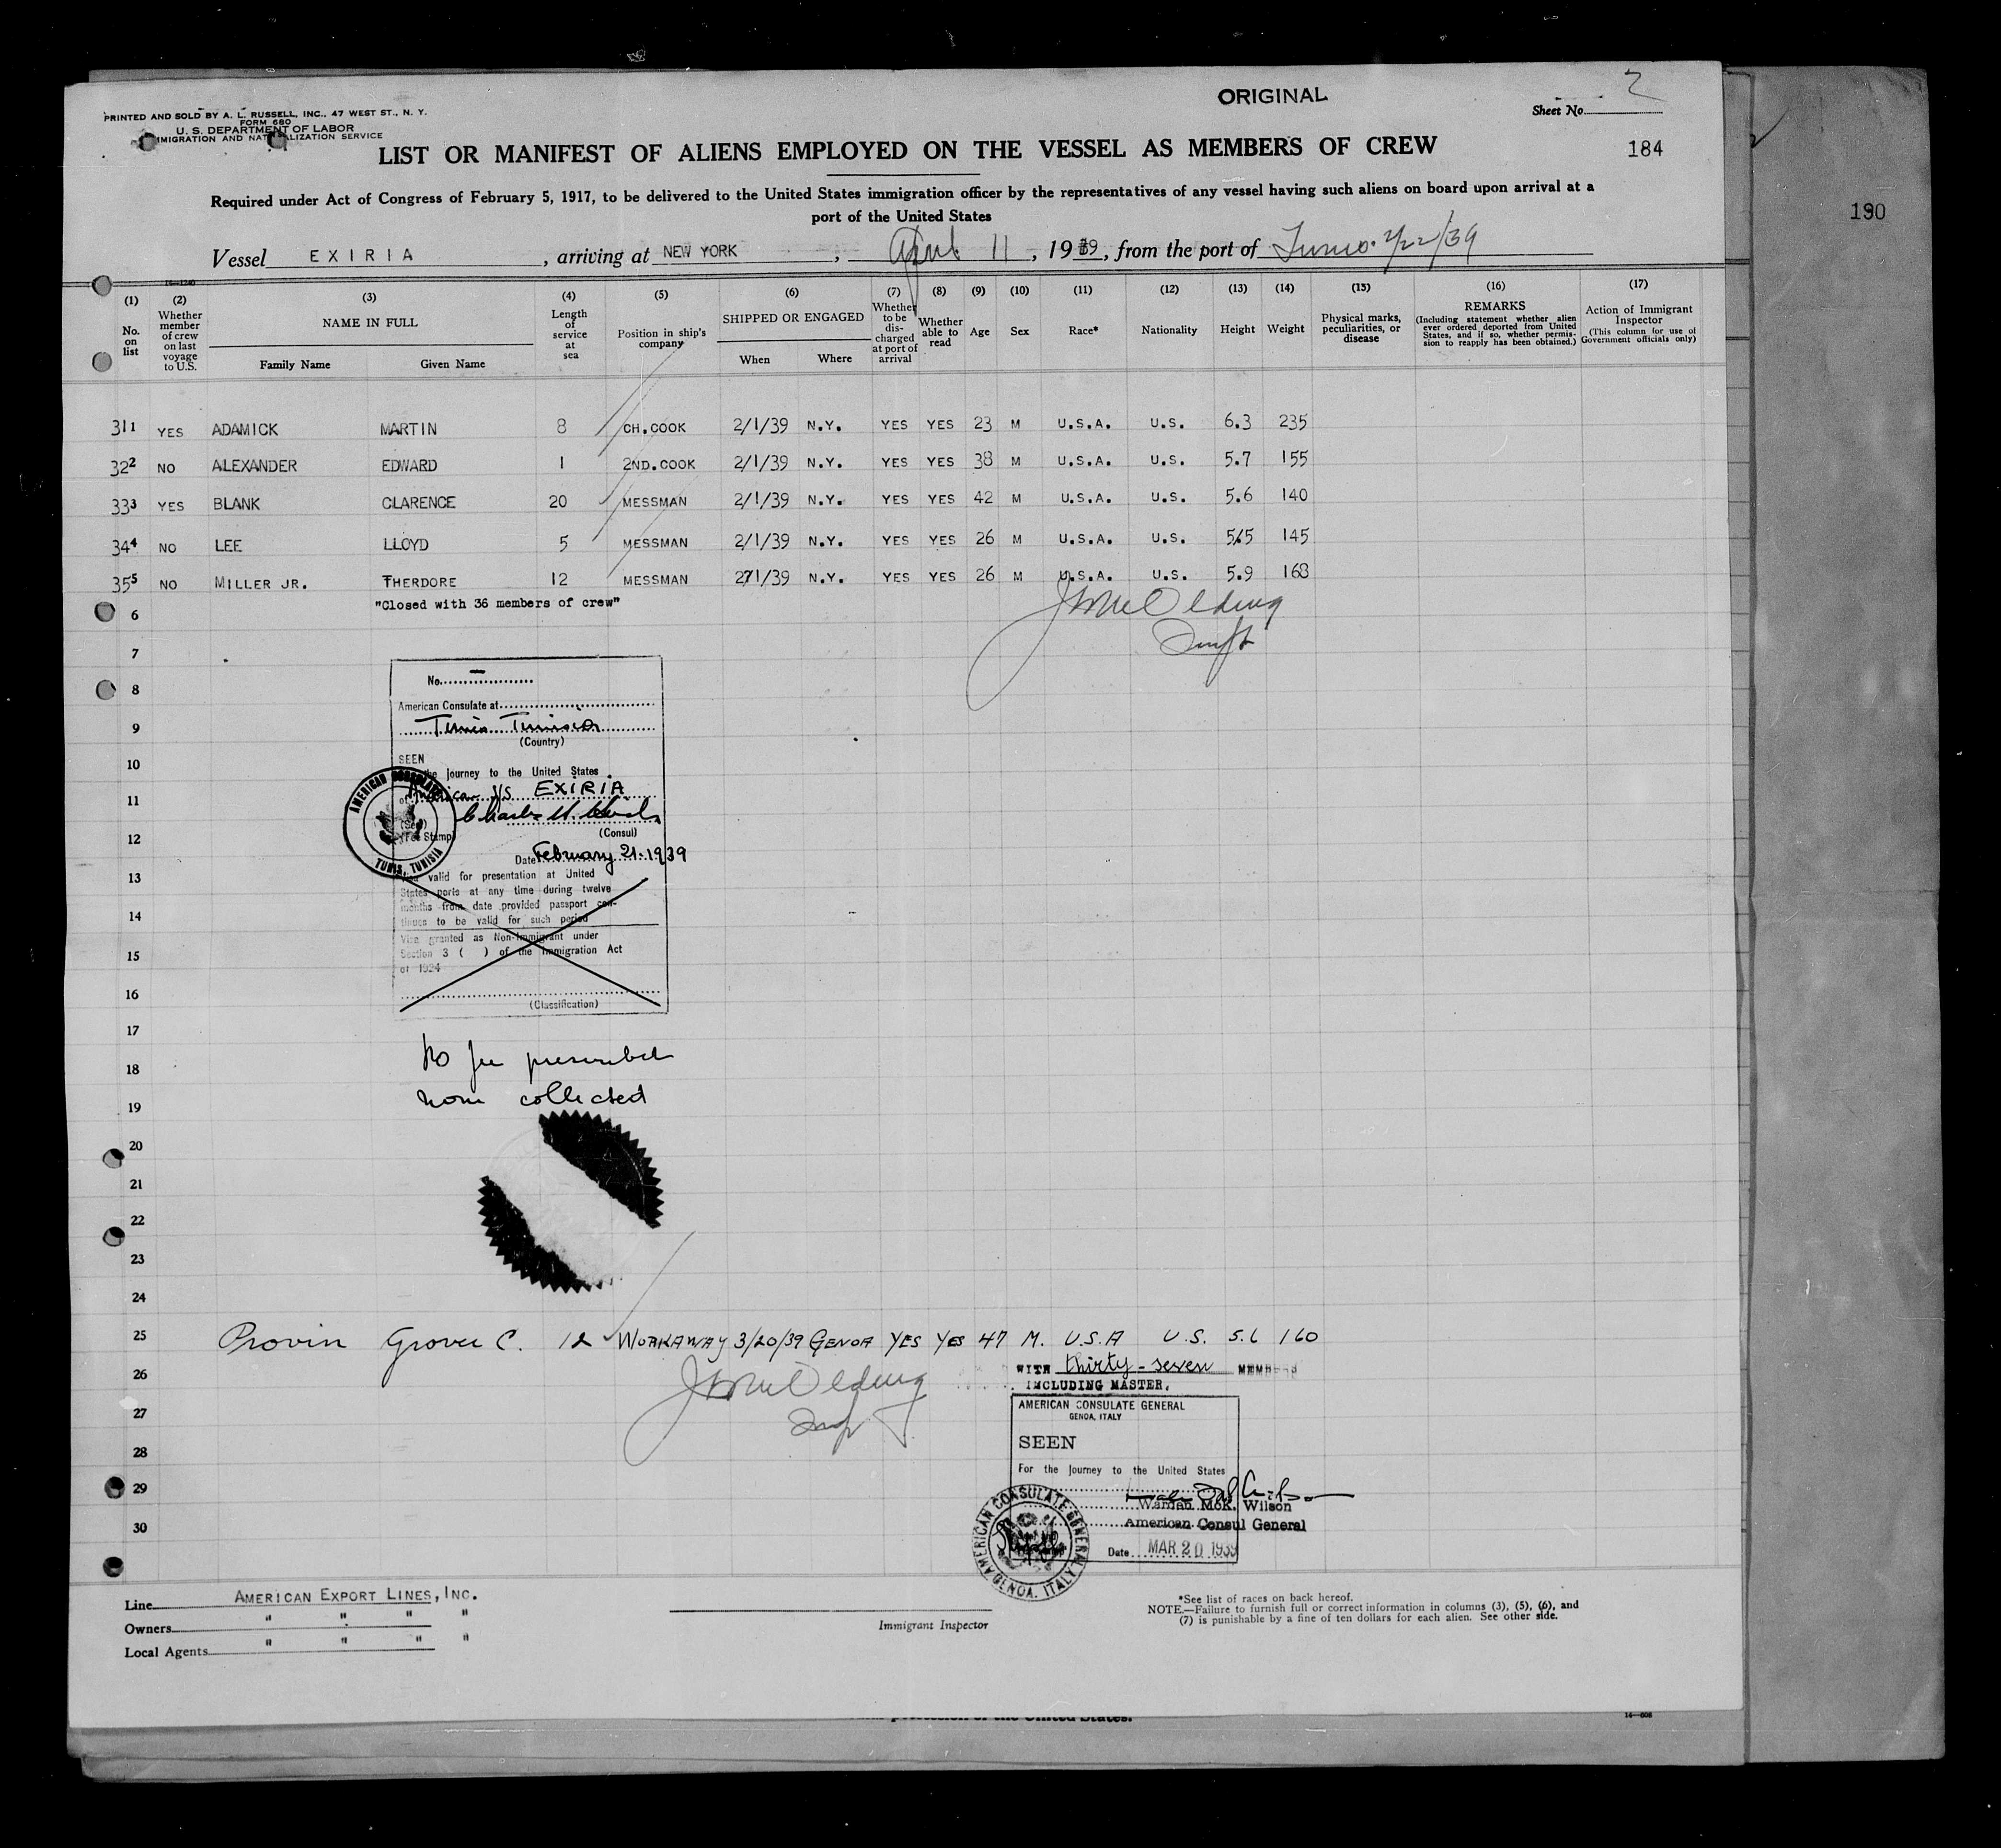 ORIGINAL
2
PRINTED AND SOLD BY A. L. RUSSELL, INC., 47 WEST ST., N. Y.
FORM 680
U. S. DEPARTMENT OF LABOR
IMMIGRATION AND NATURALIZATION SERVICE
Sheet No.
LIST OR MANIFEST OF ALIENS EMPLOYED ON THE VESSEL AS MEMBERS OF CREW
184
190
Required under Act of Congress of February 5, 1917, to be delivered to the United States immigration officer by the representatives of any vessel having such aliens on board upon arrival at a
port of the United States
Vessel EXIRIA, arriving at NEW YORK, April 11, 1939, from the port of Tunis 2/22/39
(1) No. on list
(2) Whether member of crew on last voyage to U.S.
(3) NAME IN FULL Family Name Given Name
(4) Length of service at sea
(5) Position in ship's company
(6) SHIPPED OR ENGAGED When Where
(7) Whether to be discharged at port of arrival
(8) Whether able to read
(9) Age
(10) Sex
(11) Race*
(12) Nationality
(13) Height
(14) Weight
(15) Physical marks, peculiarities, or disease
(16) REMARKS (Including statement whether alien ever ordered deported from United States, and if so, whether permission to reapply has been obtained.)
(17) Action of Immigrant Inspector (This column for use of Government officials only)
31 1 YES ADAMICK MARTIN 8 CH.COOK 2/1/39 N.Y. YES YES 23 M U.S.A. U.S. 6.3 235
32 2 NO ALEXANDER EDWARD 1 2ND.COOK 2/1/39 N.Y. YES YES 38 M U.S.A. U.S. 5.7 155
33 3 YES BLANK CLARENCE 20 MESSMAN 2/1/39 N.Y. YES YES 42 M U.S.A. U.S. 5.6 140
34 4 NO LEE LLOYD 5 MESSMAN 2/1/39 N.Y. YES YES 26 M U.S.A. U.S. 5.5 145
35 5 NO MILLER JR. THERDORE 12 MESSMAN 2/1/39 N.Y. YES YES 26 M U.S.A. U.S. 5.9 168
6 "Closed with 36 members of crew"
7
8
9
10
11
12
13
14
15
16
17
18
19
20
21
22
23
24
No.
American Consulate at
Tunis Tunisia
(Country)
SEEN
the journey to the United States
of American S/S EXIRIA
(Consul)
(Seal)
(Fee Stamp)
AMERICAN CONSULATE
TUNIS, TUNISIA
Date February 21. 1939
valid for presentation at United
States ports at any time during twelve
months from date provided passport con-
tinues to be valid for such period
Visa granted as Non-Immigrant under
Section 3 ( ) of the Immigration Act
of 1924
(Classification)
No fee prescribed
none collected
25 Provin Grover C. 12 WORKAWAY 3/20/39 GENOA YES YES 47 M. U.S.A U.S. 5.6 160
26
27
28
29
30
WITH thirty-seven MEMBERS
INCLUDING MASTER,
AMERICAN CONSULATE GENERAL
GENOA, ITALY
SEEN
For the journey to the United States
Warden McK. Wilson
American Consul General
Date MAR 20 1939
AMERICAN CONSULATE GENERAL
GENOA, ITALY
Line AMERICAN EXPORT LINES, INC.
Owners " " " "
Local Agents " " " "
Immigrant Inspector
*See list of races on back hereof.
NOTE.—Failure to furnish full or correct information in columns (3), (5), (6), and
(7) is punishable by a fine of ten dollars for each alien. See other side.
of the United States.
14—608